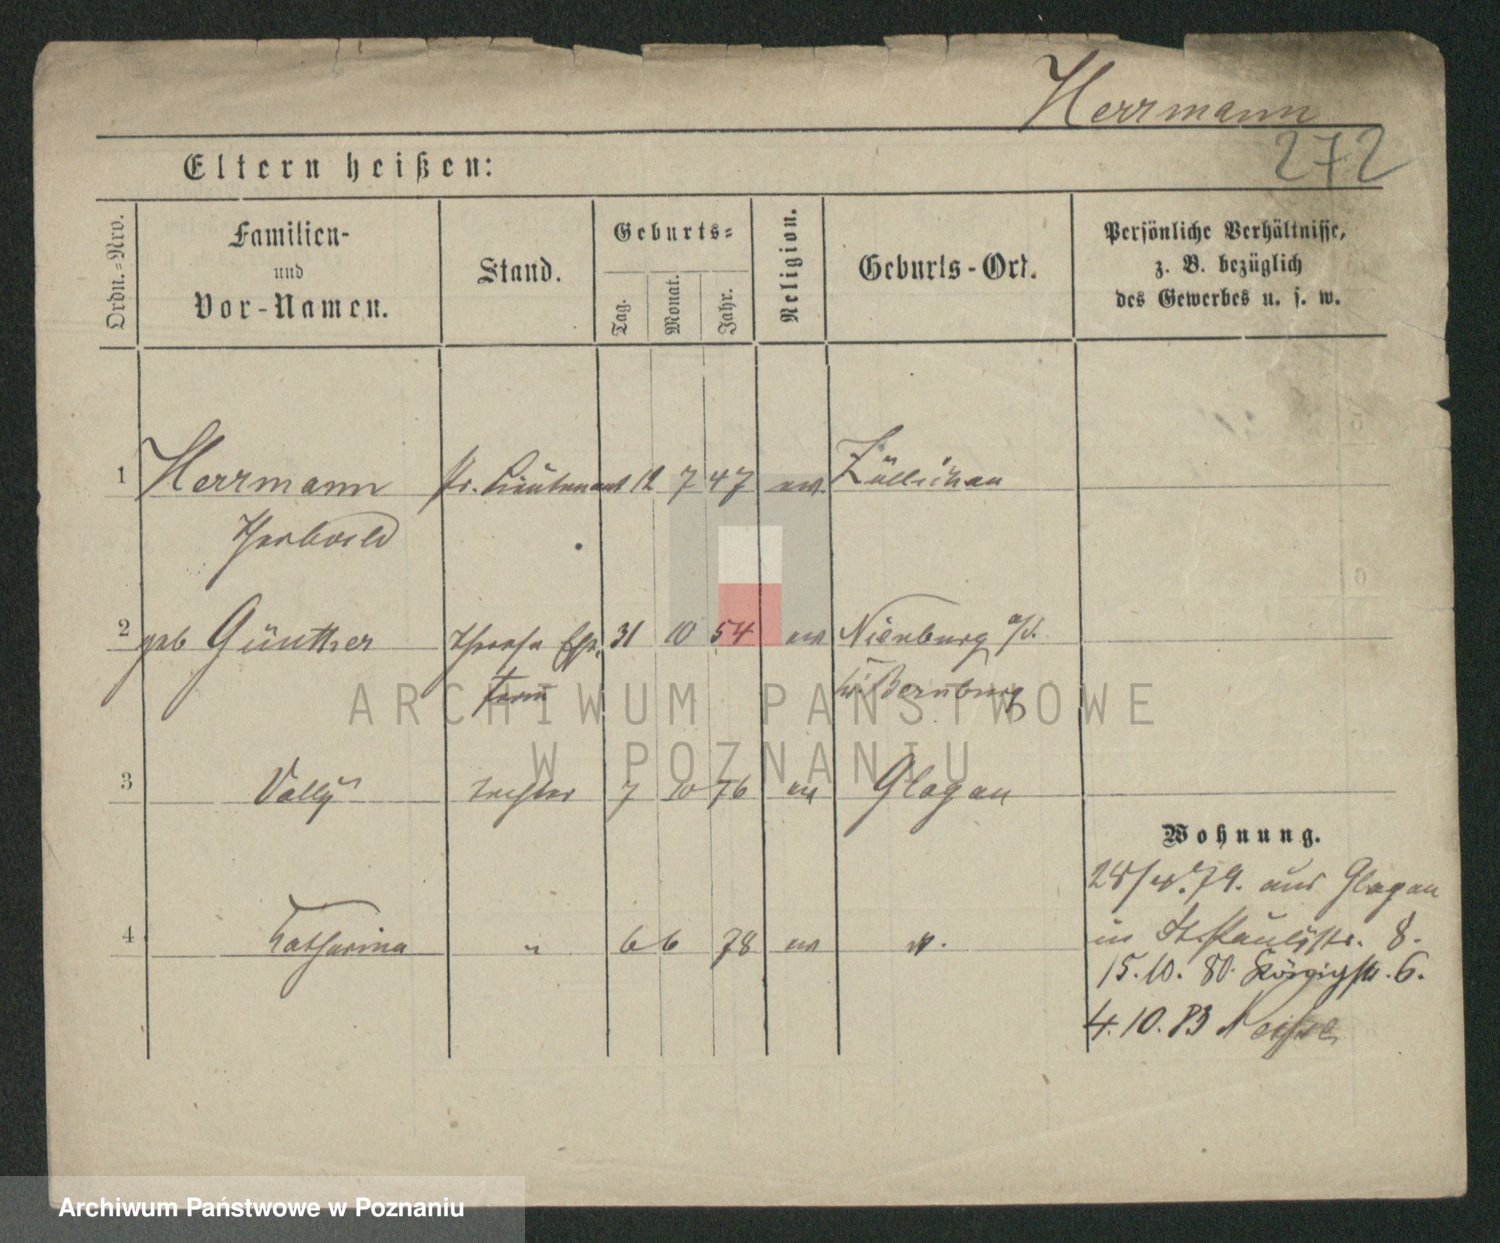 Herrmann
272
Eltern heißen:
Ordn.-Nro.
Familien-
und
Vor-Namen.
Stand.
Geburts-
Tag.
Monat.
Jahr.
Religion.
Geburts-Ort.
Persönliche Verhältnisse,
z. B. bezüglich
des Gewerbes u. s. w.
1 Herrmann Pr. Lieutenant 12 7 47 ev. Züllichau
2 geb Günther 31 10 54 ev Nienburg a/S.
Bernburg
3 Vally Tochter 7 10 76 ev Glogau
4 Catharina " 6 6 78 ev
Wohnung.
79. aus Glogau
in St. Paulistr. 8.
15.10.80. Königstr. 6.
4.10.83 Neisse
ARCHIWUM PAŃSTWOWE
W POZNANIU
Archiwum Państwowe w Poznaniu